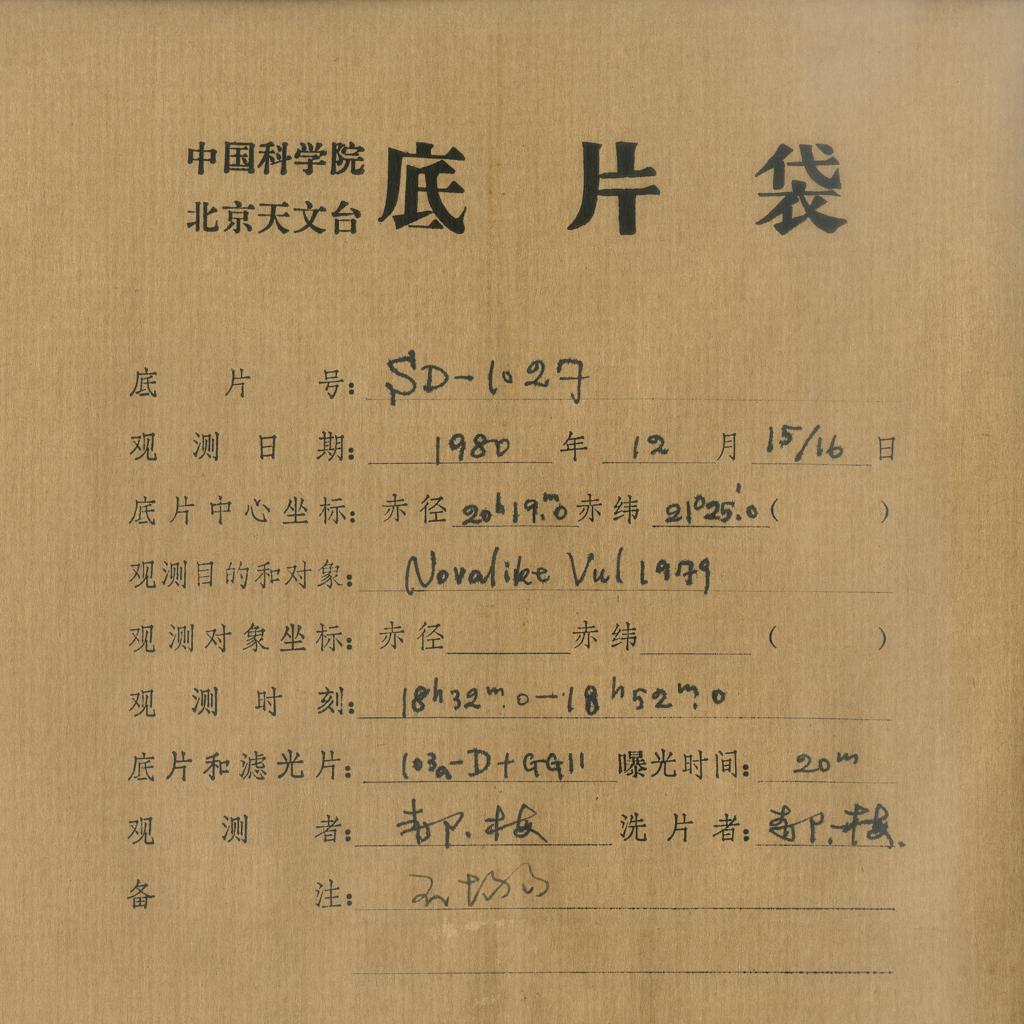 中国科学院
北京天文台 底片袋
底片号: SD-1027
观测日期: 1980 年 12 月 15/16 日
底片中心坐标: 赤径 20h19m.0 赤纬 21°25'.0 ( )
观测目的和对象: Novalike Vul 1979
观测对象坐标: 赤径 赤纬 ( )
观测时刻: 18h32m.0—18h52m.0
底片和滤光片: 103a-D+GG11 曝光时间: 20m
观测者: 郝.梅 洗片者: 郝.梅.
备注: